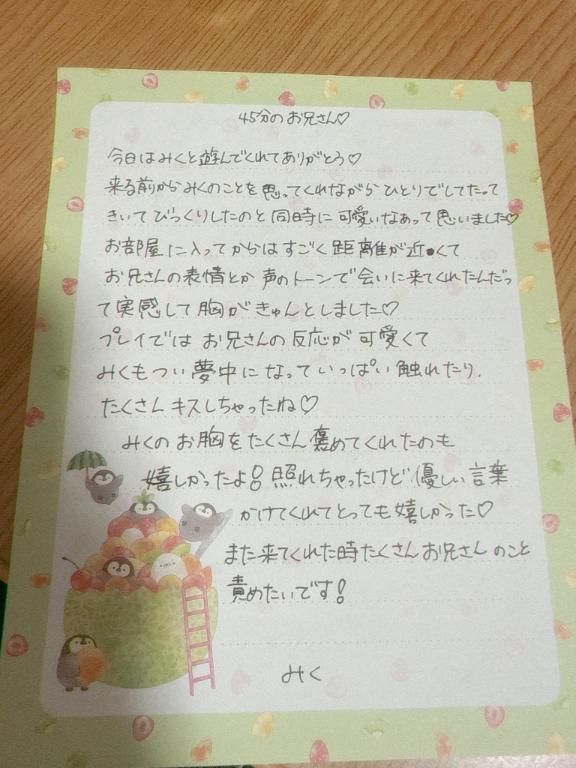 45分のお兄さん♡
今日はみくと遊んでくれてありがとう♡
来る前からみくのことを思ってくれながらひとりでしてたって
きいてびっくりしたのと同時に可愛いなあって思いました♡
お部屋に入ってからはすごく距離が近くて
お兄さんの表情とか声のトーンで会いに来てくれたんだっ
て実感して胸がきゅんとしました♡
プレイではお兄さんの反応が可愛くて
みくもつい夢中になっていっぱい触れたり、
たくさんキスしちゃったね♡
みくのお胸をたくさん褒めてくれたのも
嬉しかったよ!照れちゃったけど優しい言葉
かけてくれてとっても嬉しかった♡
また来てくれた時たくさんお兄さんのこと
責めたいです!
みく